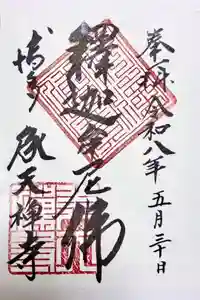 奉拝 令和八年 五月三十日
釋迦牟尼佛
博多 承天禅寺